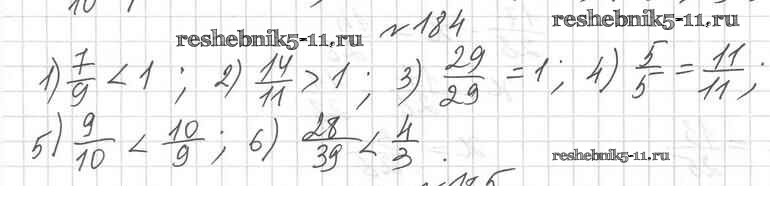 reshebnik5-11.ru № 184 reshebnik5-11.ru
1) 7/9 < 1 ; 2) 14/11 > 1 ; 3) 29/29 = 1 ; 4) 5/5 = 11/11 ;
5) 9/10 < 10/9 ; 6) 28/39 < 4/3 .
reshebnik5-11.ru